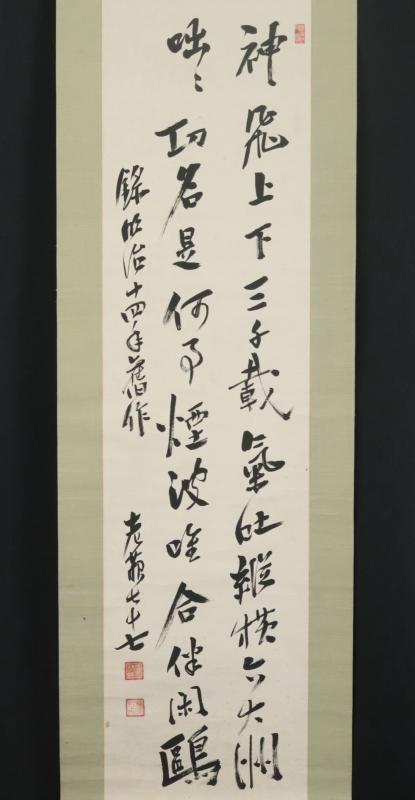 神飛上下三千載氣吐縱横六大洲
咄々功名是何事煙波唯合伴閑鷗
錄明治十四年舊作
老蘇七十七